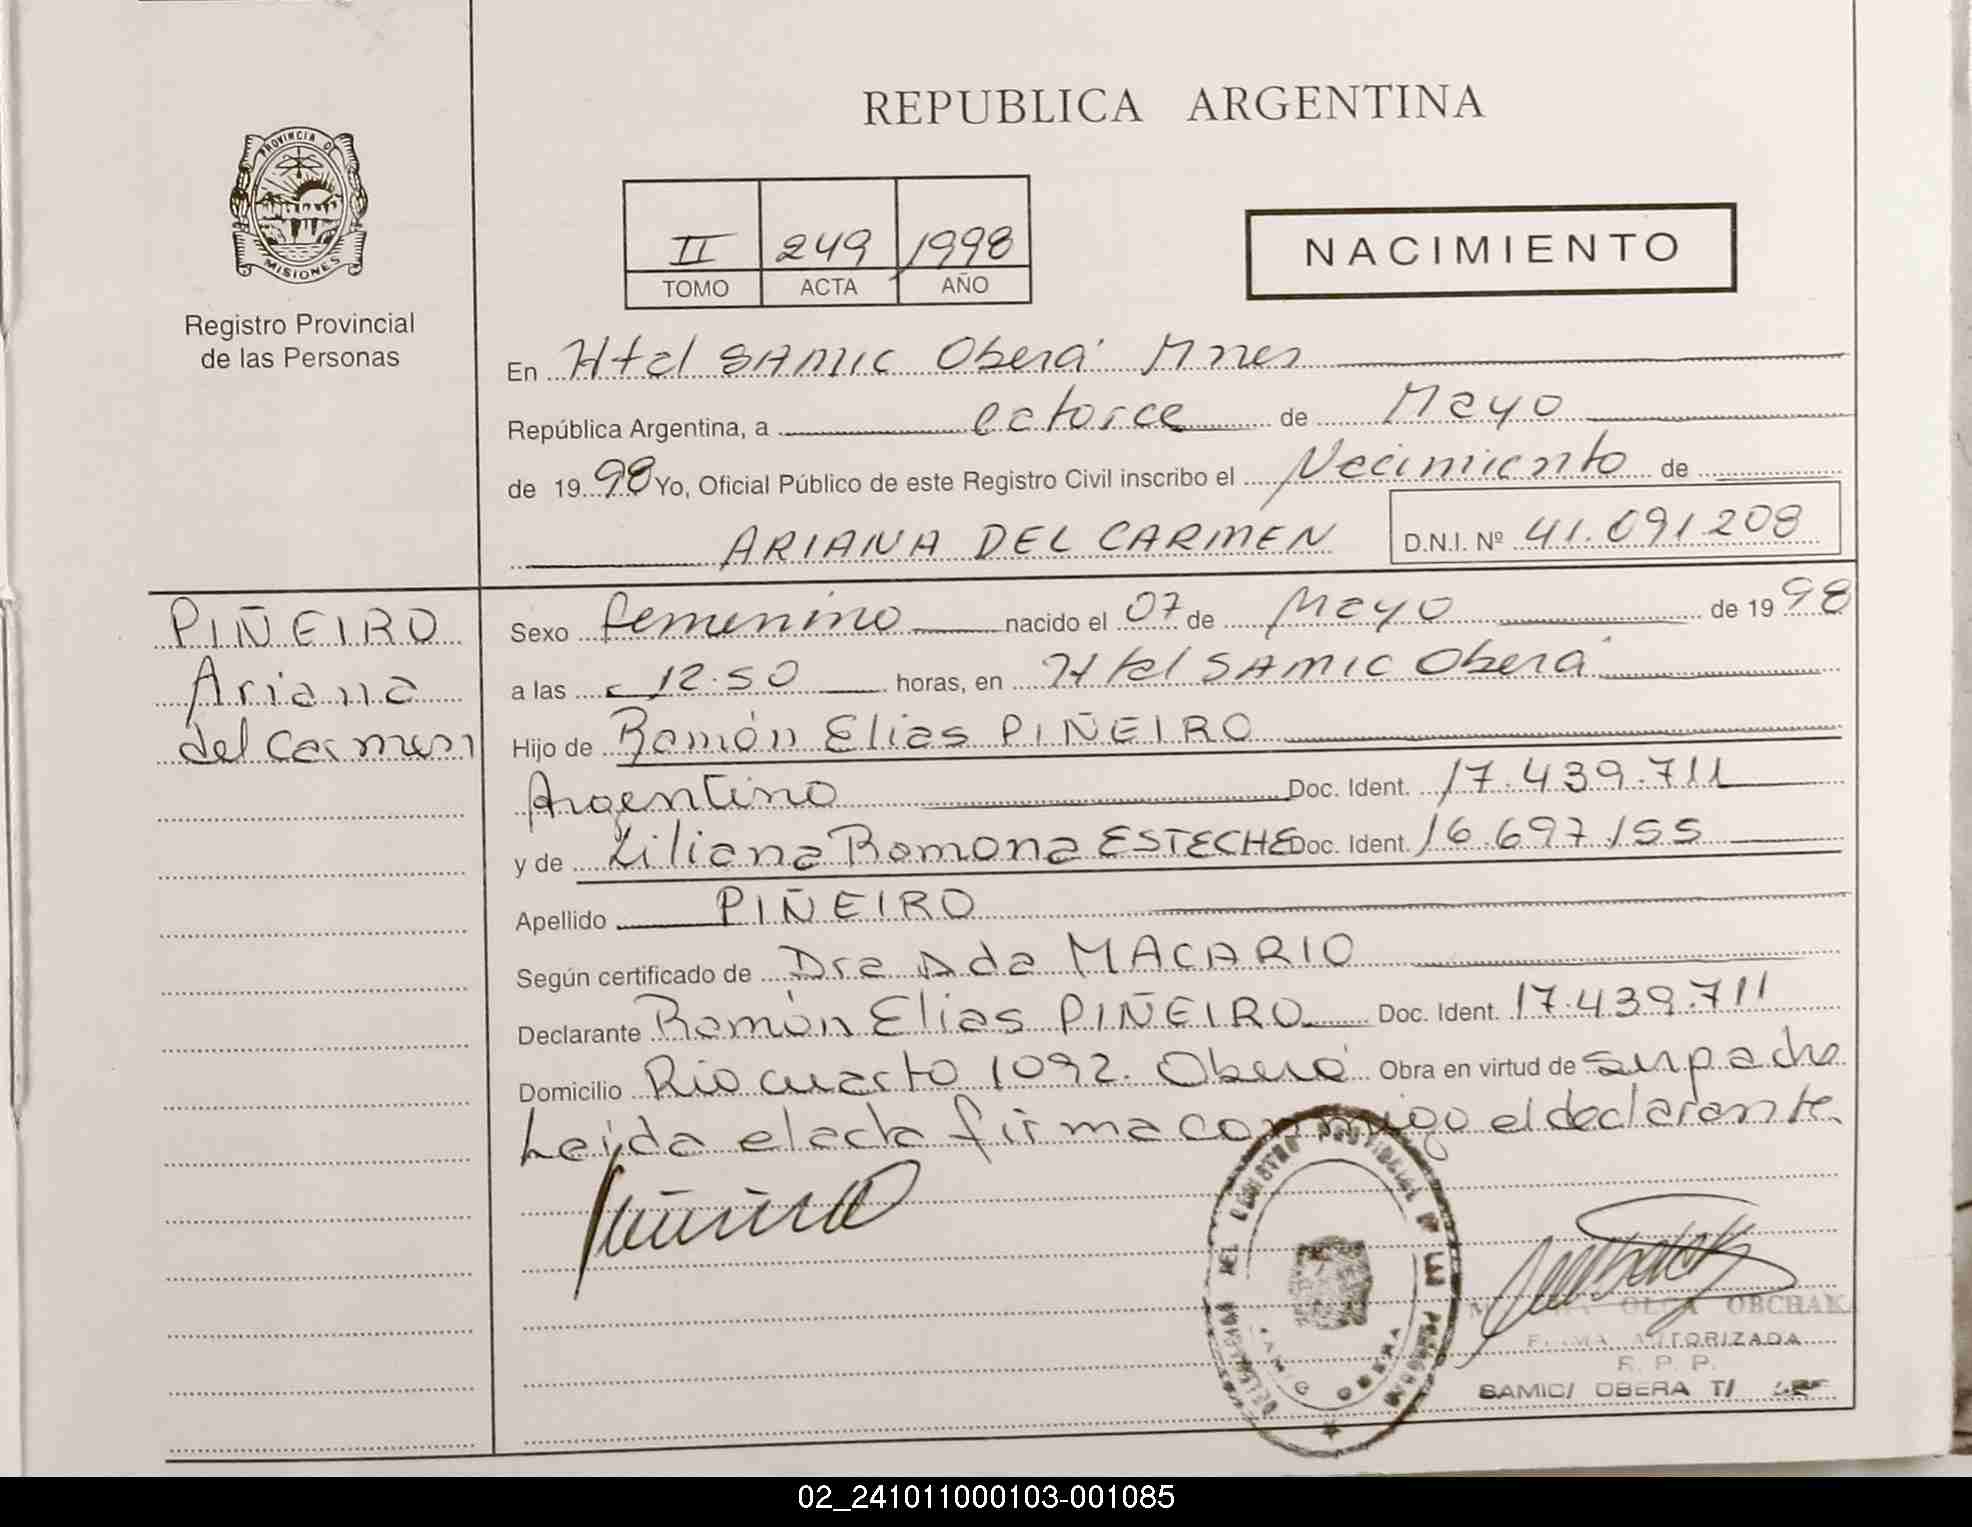 REPUBLICA ARGENTINA
PROVINCIA DE
MISIONES
Registro Provincial
de las Personas
II 249 1998
TOMO ACTA AÑO
NACIMIENTO
En Htal SAMIC Oberá Mnes
República Argentina, a catorce de Mayo
de 1998 Yo, Oficial Público de este Registro Civil inscribo el Nacimiento de
ARIANA DEL CARMEN D.N.I. Nº 41.091.208
PIÑEIRO
Ariana
del Carmen
Sexo femenino nacido el 07 de Mayo de 1998
a las 12.50 horas, en Htal SAMIC Oberá
Hijo de Ramón Elias PIÑEIRO
Argentino Doc. Ident. 17.439.711
y de Liliana Ramona ESTECHE Doc. Ident. 16.697.155
Apellido PIÑEIRO
Según certificado de Dra Ada MACARIO
Declarante Ramón Elias PIÑEIRO Doc. Ident. 17.439.711
Domicilio Rio cuarto 1092. Oberá Obra en virtud de su padre
Leida el acta firma conmigo el declarante.
OLGA OBCHAK
FIRMA AUTORIZADA
R. P. P.
SAMIC/ OBERA T/
02_241011000103-001085